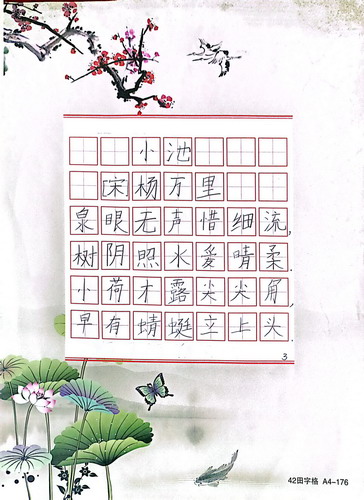 小池
[宋 杨万里
泉眼无声惜细流,
树阴照水爱晴柔.
小荷才露尖尖角,
早有蜻蜓立上头.
3
42田字格 A4-176